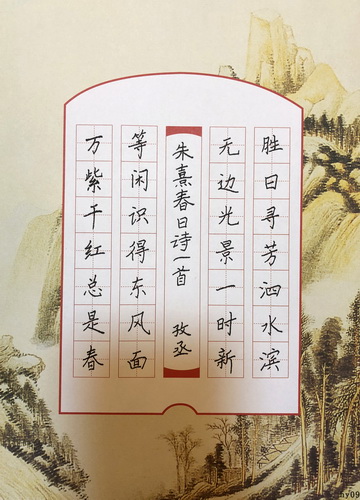 胜日寻芳泗水滨
无边光景一时新
朱熹春日诗一首 孜丞
等闲识得东风面
万紫千红总是春